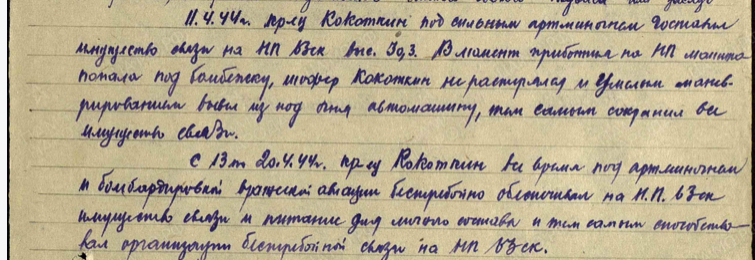 11.4.44г. кр-ец Кокоткин под сильным артминогнем доставил
имущество связи на НП 63ск выс. 30,3. В момент прибытия на НП машина
попала под бомбежку, шофер Кокоткин не растерялся и умелым манев-
рированием вывел из под огня автомашину, тем самым сохранил все
имущество связи.
С 13 по 20.4.44г. кр-ец Кокоткин все время под артминогнем
и бомбардировкой вражеской авиации бесперебойно обеспечивал на Н.П. 63ск
имущество связи и питание для личного состава и тем самым способство-
вал организации бесперебойной связи на НП 63ск.